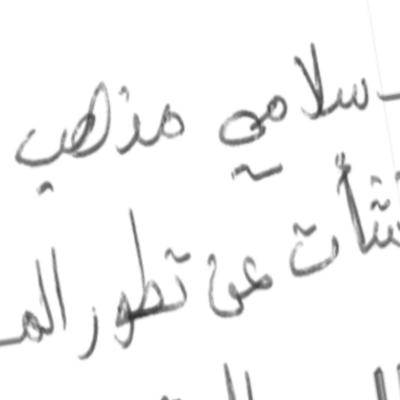 سلامي مذهب
نشأت عن تطور الم